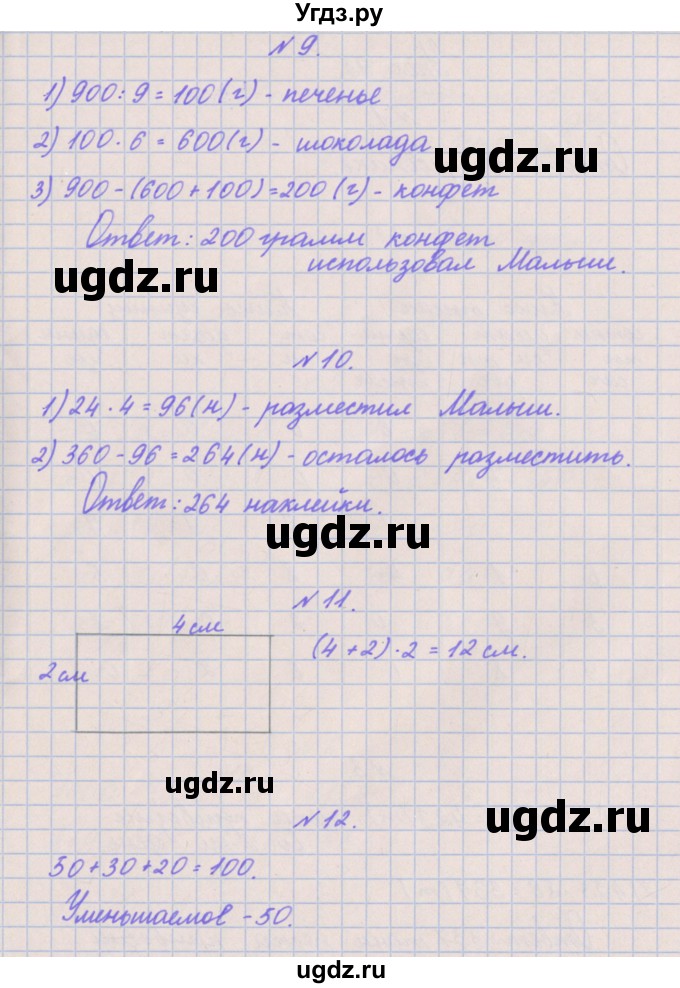 Угдз.ру
№ 9.
1) 900 : 9 = 100 (г) - печенье
2) 100 · 6 = 600 (г) - шоколада
ugdz.ru
3) 900 - (600 + 100) = 200 (г) - конфет
Ответ: 200 грамм конфет
использовал Малыш.
ugdz.ru
№ 10.
1) 24 · 4 = 96 (н) - разместил Малыш.
2) 360 - 96 = 264 (н) - осталось разместить.
Ответ: 264 наклейки.
ugdz.ru
№ 11.
4 см
(4 + 2) · 2 = 12 см.
2 см
ugdz.ru
№ 12.
ugdz.ru
50 + 30 + 20 = 100.
Уменьшаемов - 50.
ugdz.ru